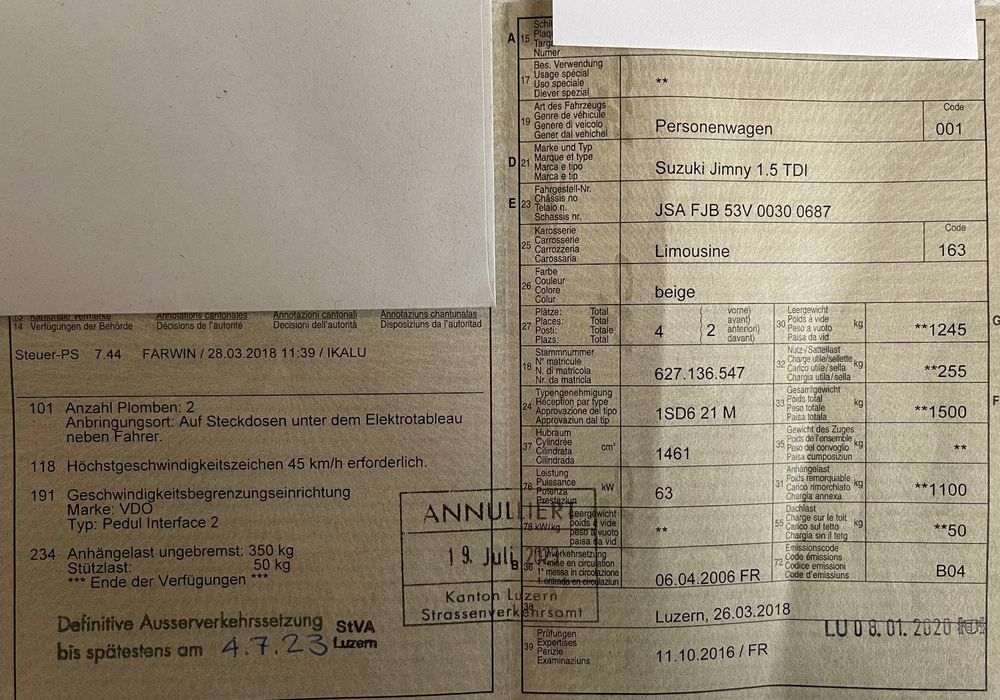 13 Kantonale Vermerke Annotations cantonales Annotazioni cantonali Annotaziuns chantunalas
14 Verfügungen der Behörde Décisions de l'autorité Decisioni dell'autorità Disposiziuns da l'autoritad
Steuer-PS 7.44 FARWIN / 28.03.2018 11:39 / IKALU
101 Anzahl Plomben: 2
Anbringungsort: Auf Steckdosen unter dem Elektrotableau
neben Fahrer.
118 Höchstgeschwindigkeitszeichen 45 km/h erforderlich.
191 Geschwindigkeitsbegrenzungseinrichtung
Marke: VDO
Typ: Pedul Interface 2
234 Anhängelast ungebremst: 350 kg
Stützlast: 50 kg
*** Ende der Verfügungen ***
Definitive Ausserverkehrssetzung StVA
bis spätestens am 4.7.23 Luzern
ANNULLIERT
19. Juli
Kanton Luzern
Strassenverkehrsamt
A 15
Numer
17 Bes. Verwendung
Usage spécial
Uso speciale
Diever spezial
**
19 Art des Fahrzeugs
Genre de véhicule
Genere di veicolo
Gener dal vehichel
Personenwagen
Code
001
D 21 Marke und Typ
Marque et type
Marca e tipo
Marca e tip
Suzuki Jimny 1.5 TDI
E 23 Fahrgestell-Nr.
Châssis no
Telaio n.
Schassis nr.
JSA FJB 53V 0030 0687
25 Karosserie
Carrosserie
Carrozzeria
Carossaria
Limousine
Code
163
26 Farbe
Couleur
Colore
Colur
beige
27 Plätze: Total
Places: Total
Posti: Totale
Plazs: Total
4
( vorne)
avant)
2 anteriori)
davant)
30 Leergewicht
Poids à vide
Peso a vuoto
Paisa da vid
kg
**1245
G
18 Stammnummer
N° matricule
N. di matricola
Nr. da matricla
627.136.547
32 Nutz-/Sattellast
Charge utile/sellette
Carico utile/sella
Chargia utila/sella
kg
**255
24 Typengenehmigung
Réception par type
Approvazione del tipo
Approvaziun dal tip
1SD6 21 M
33 Gesamtgewicht
Poids total
Peso totale
Paisa totala
kg
**1500
F
37 Hubraum
Cylindrée
Cilindrata
Cilindrada
cm³
1461
35 Gewicht des Zuges
Poids de l'ensemble
Peso del convoglio
Paisa cumposiziun
kg
**
76 Leistung
Puissance
Potenza
Prestaziun
kW
63
31 Anhängelast
Poids remorquable
Carico rimorchiato
Chargia annexa
kg
**1100
78 kW/kg Leergewicht
poids à vide
peso a vuoto
paisa da vid
**
55 Dachlast
Charge sur le toit
Carico sul tetto
Chargia sin il tetg
kg
**50
36
1. entrada en circulaziun
06.04.2006 FR
72 Emissionscode
Code émissions
Codice emissioni
Code d'emissiuns
B04
38
Luzern, 26.03.2018
LU 08.01.2020
39 Prüfungen
Expertises
Perizie
Examinaziuns
11.10.2016 / FR